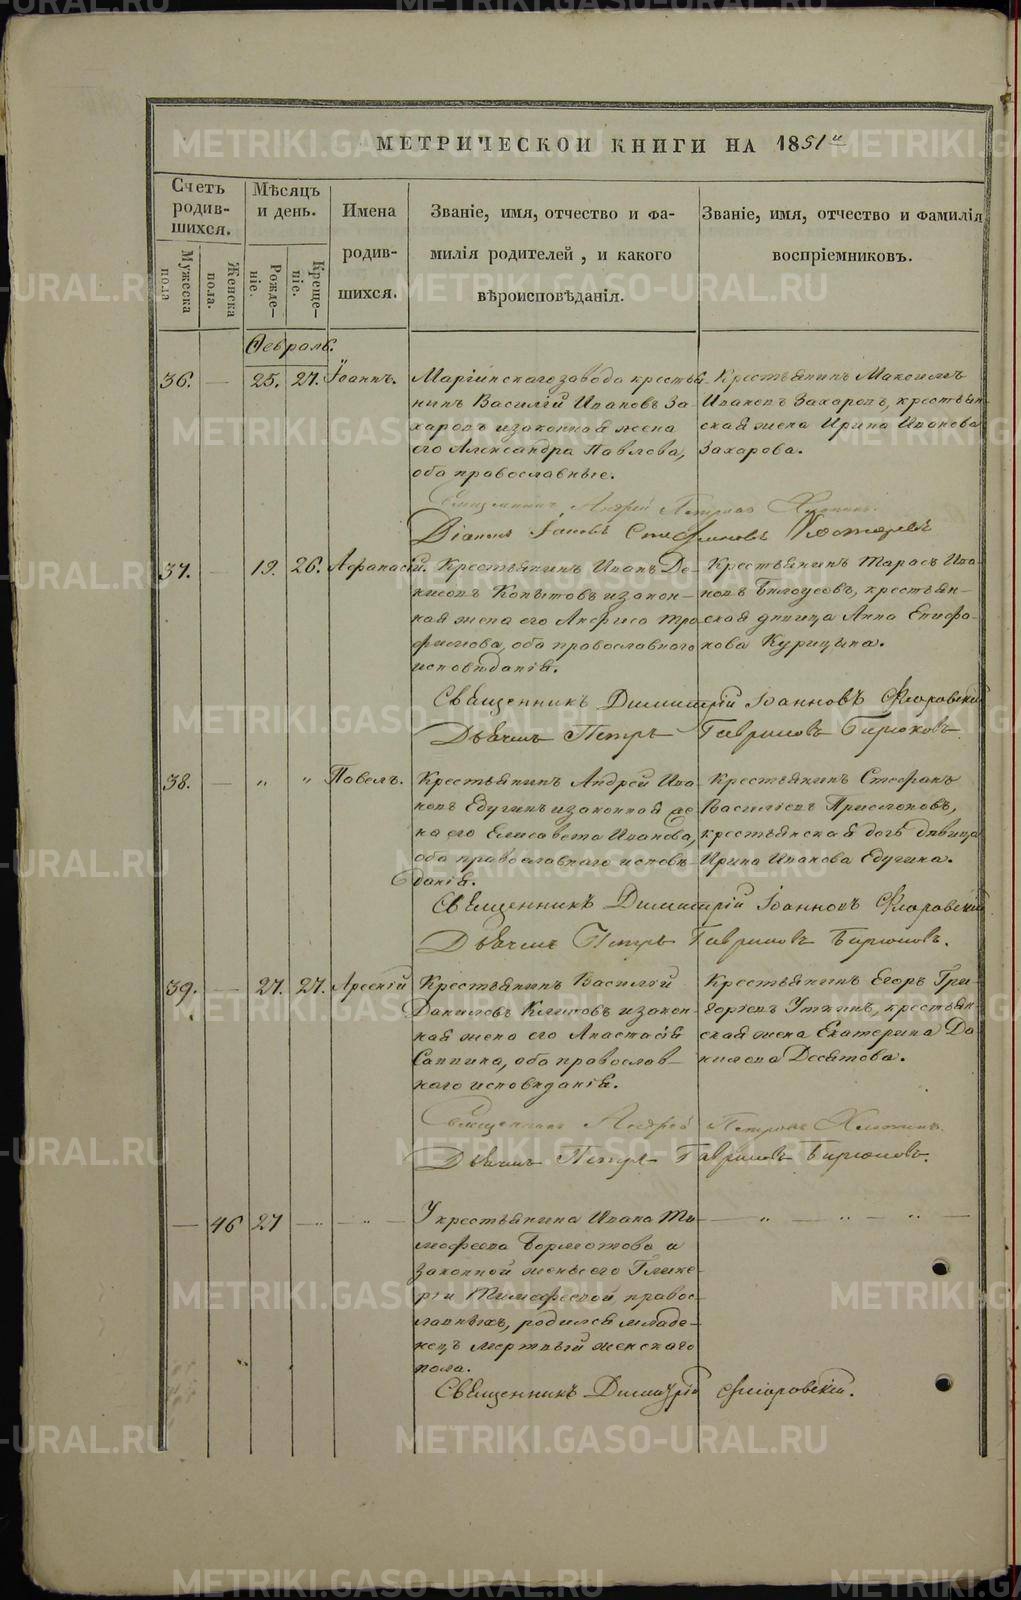 МЕТРИЧЕСКОЙ КНИГИ НА 1851й
Счетъ родив-шихся.
Мужеска пола
Женска пола.
Мѣсяцъ и день.
Рожде-ніе.
Креще-ніе.
Имена
родив-
шихся.
Званіе, имя, отчество и фа-
милія родителей, и какого
вѣроисповѣданія.
Званіе, имя, отчество и фамилія
воспріемниковъ.
Февраль.
36. — 25. 27. Іоаннъ.
Маріинскаго завода крестья-
нинъ Василій Ивановъ За-
харовъ и законная жена
его Александра Павлова,
оба православные.
Крестьянинъ Максимъ
Ивановъ Захаровъ, крестьян-
ская жена Ирина Иванова
Захарова.
Священникъ Андрей Петровъ
Діаконъ Іаковъ
37. — 19. 26. Афанасій.
Крестьянинъ Иванъ Де-
нисовъ Копытовъ и закон-
ная жена его Анфиса Тро-
фимова, оба православнаго
исповѣданія.
Крестьянинъ Тарасъ Ива-
новъ Бѣлоусовъ, крестьян-
ская дѣвица Анна Епифа-
нова Курицына.
Священникъ Димитрій Іоанновъ Флоровскій
Дьячекъ Петръ Гавриловъ Бирюковъ
38. — " " Павелъ.
Крестьянинъ Андрей Ива-
новъ Едугинъ и законная же-
на его Елисавета Иванова,
оба православнаго исповѣ-
данія.
Крестьянинъ Стефанъ
Васильевъ Прислоновъ,
крестьянская дочь дѣвица
Ирина Иванова Едугина.
Священникъ Димитрій Іоанновъ Флоровскій
Дьячекъ Петръ Гавриловъ Бирюковъ.
39. — 27. 27. Арсеній
Крестьянинъ Василій
Даниловъ Климовъ и закон-
ная жена его Анастасія
Саввина, оба православ-
наго исповѣданія.
Крестьянинъ Егоръ Гри-
горьевъ Уткинъ, крестьян-
ская жена Екатерина Да-
нилова Десятова.
Священникъ Андрей Петровъ
Дьячекъ Петръ Гавриловъ Бирюковъ.
— 46 27 — " — " —
У крестьянина Ивана Ти-
мофеева Бормотова и
законной жены его Глике-
ріи Тимофеевой правос-
лавныхъ, родился младе-
нецъ мертвый женскаго
пола.
— " — " — " —
Священникъ Димитрій Флоровскій.
METRIKI.GASO-URAL.RU